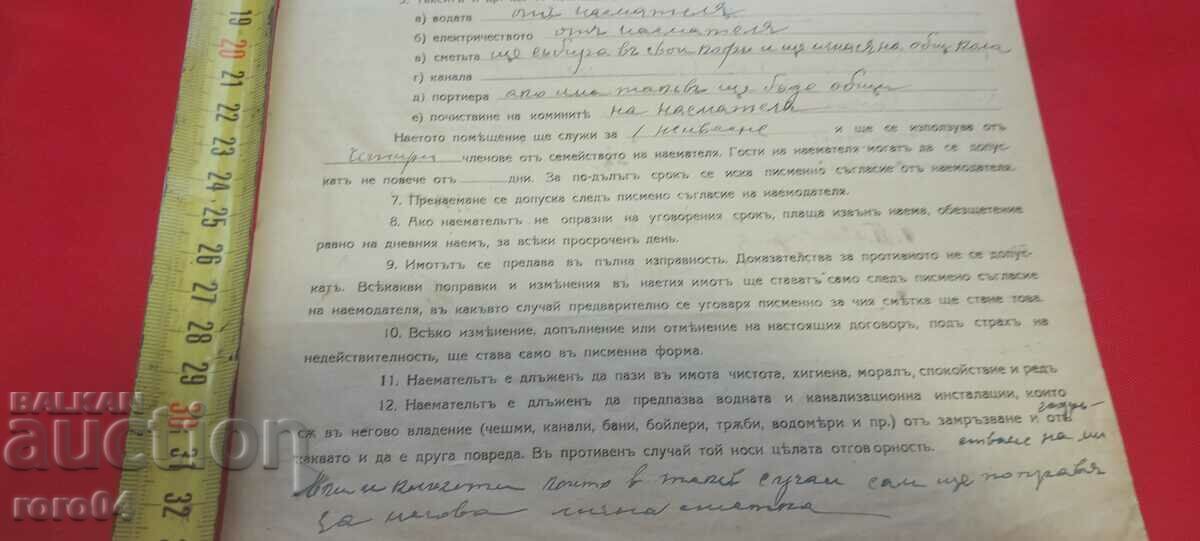 а) водата отъ наемателя
б) електричеството отъ наемателя
в) сметьта ще събира въ свои кофи и ще изнася на общ. кола
г) канала
д) портиера ако има такъвъ ще бъде общи
е) почистване на комините на наемателя
Наетото помѣщение ще служи за живѣене и ще се използува отъ
четири членове отъ семейството на наемателя. Гости на наемателя могатъ да се допус-
катъ не повече отъ дни. За по-дълъгъ срокъ се иска писменно съгласие отъ наемодателя.
7. Пренаемане се допуска следъ писмено съгласие на наемодателя.
8. Ако наемательтъ не опразни на уговорения срокъ, плаща извънъ наема, обезщетение
равно на дневния наемъ, за всѣки просроченъ день.
9. Имотътъ се предава въ пълна изправность. Доказателства за противното не се допус-
катъ. Всѣкакви поправки и измѣнения въ наетия имотъ ще ставатъ само следъ писмено съгласие
на наемодателя, въ какъвто случай предварително се уговаря писменно за чия смѣтка ще стане това.
10. Всѣко измѣнение, допълнение или отмѣнение на настоящия договоръ, подъ страхъ на
недействителность, ще става само въ писменна форма.
11. Наемательтъ е длъженъ да пази въ имота чистота, хигиена, моралъ, спокойствие и редъ
12. Наемательтъ е длъженъ да предпазва водната и канализационна инсталации, които
сѫ въ негово владение (чешми, канали, бани, бойлери, трѫби, водомѣри и пр.) от замръзване и отъ
каквато и да е друга повреда. Въ противенъ случай той носи цѣлата отговорность.
които в такъв случай сам ще поправя
за негова лична сметка
19 20 21 22 23 24 25 26 27 28 29 30 31 32
BALKAN
auction
roro04